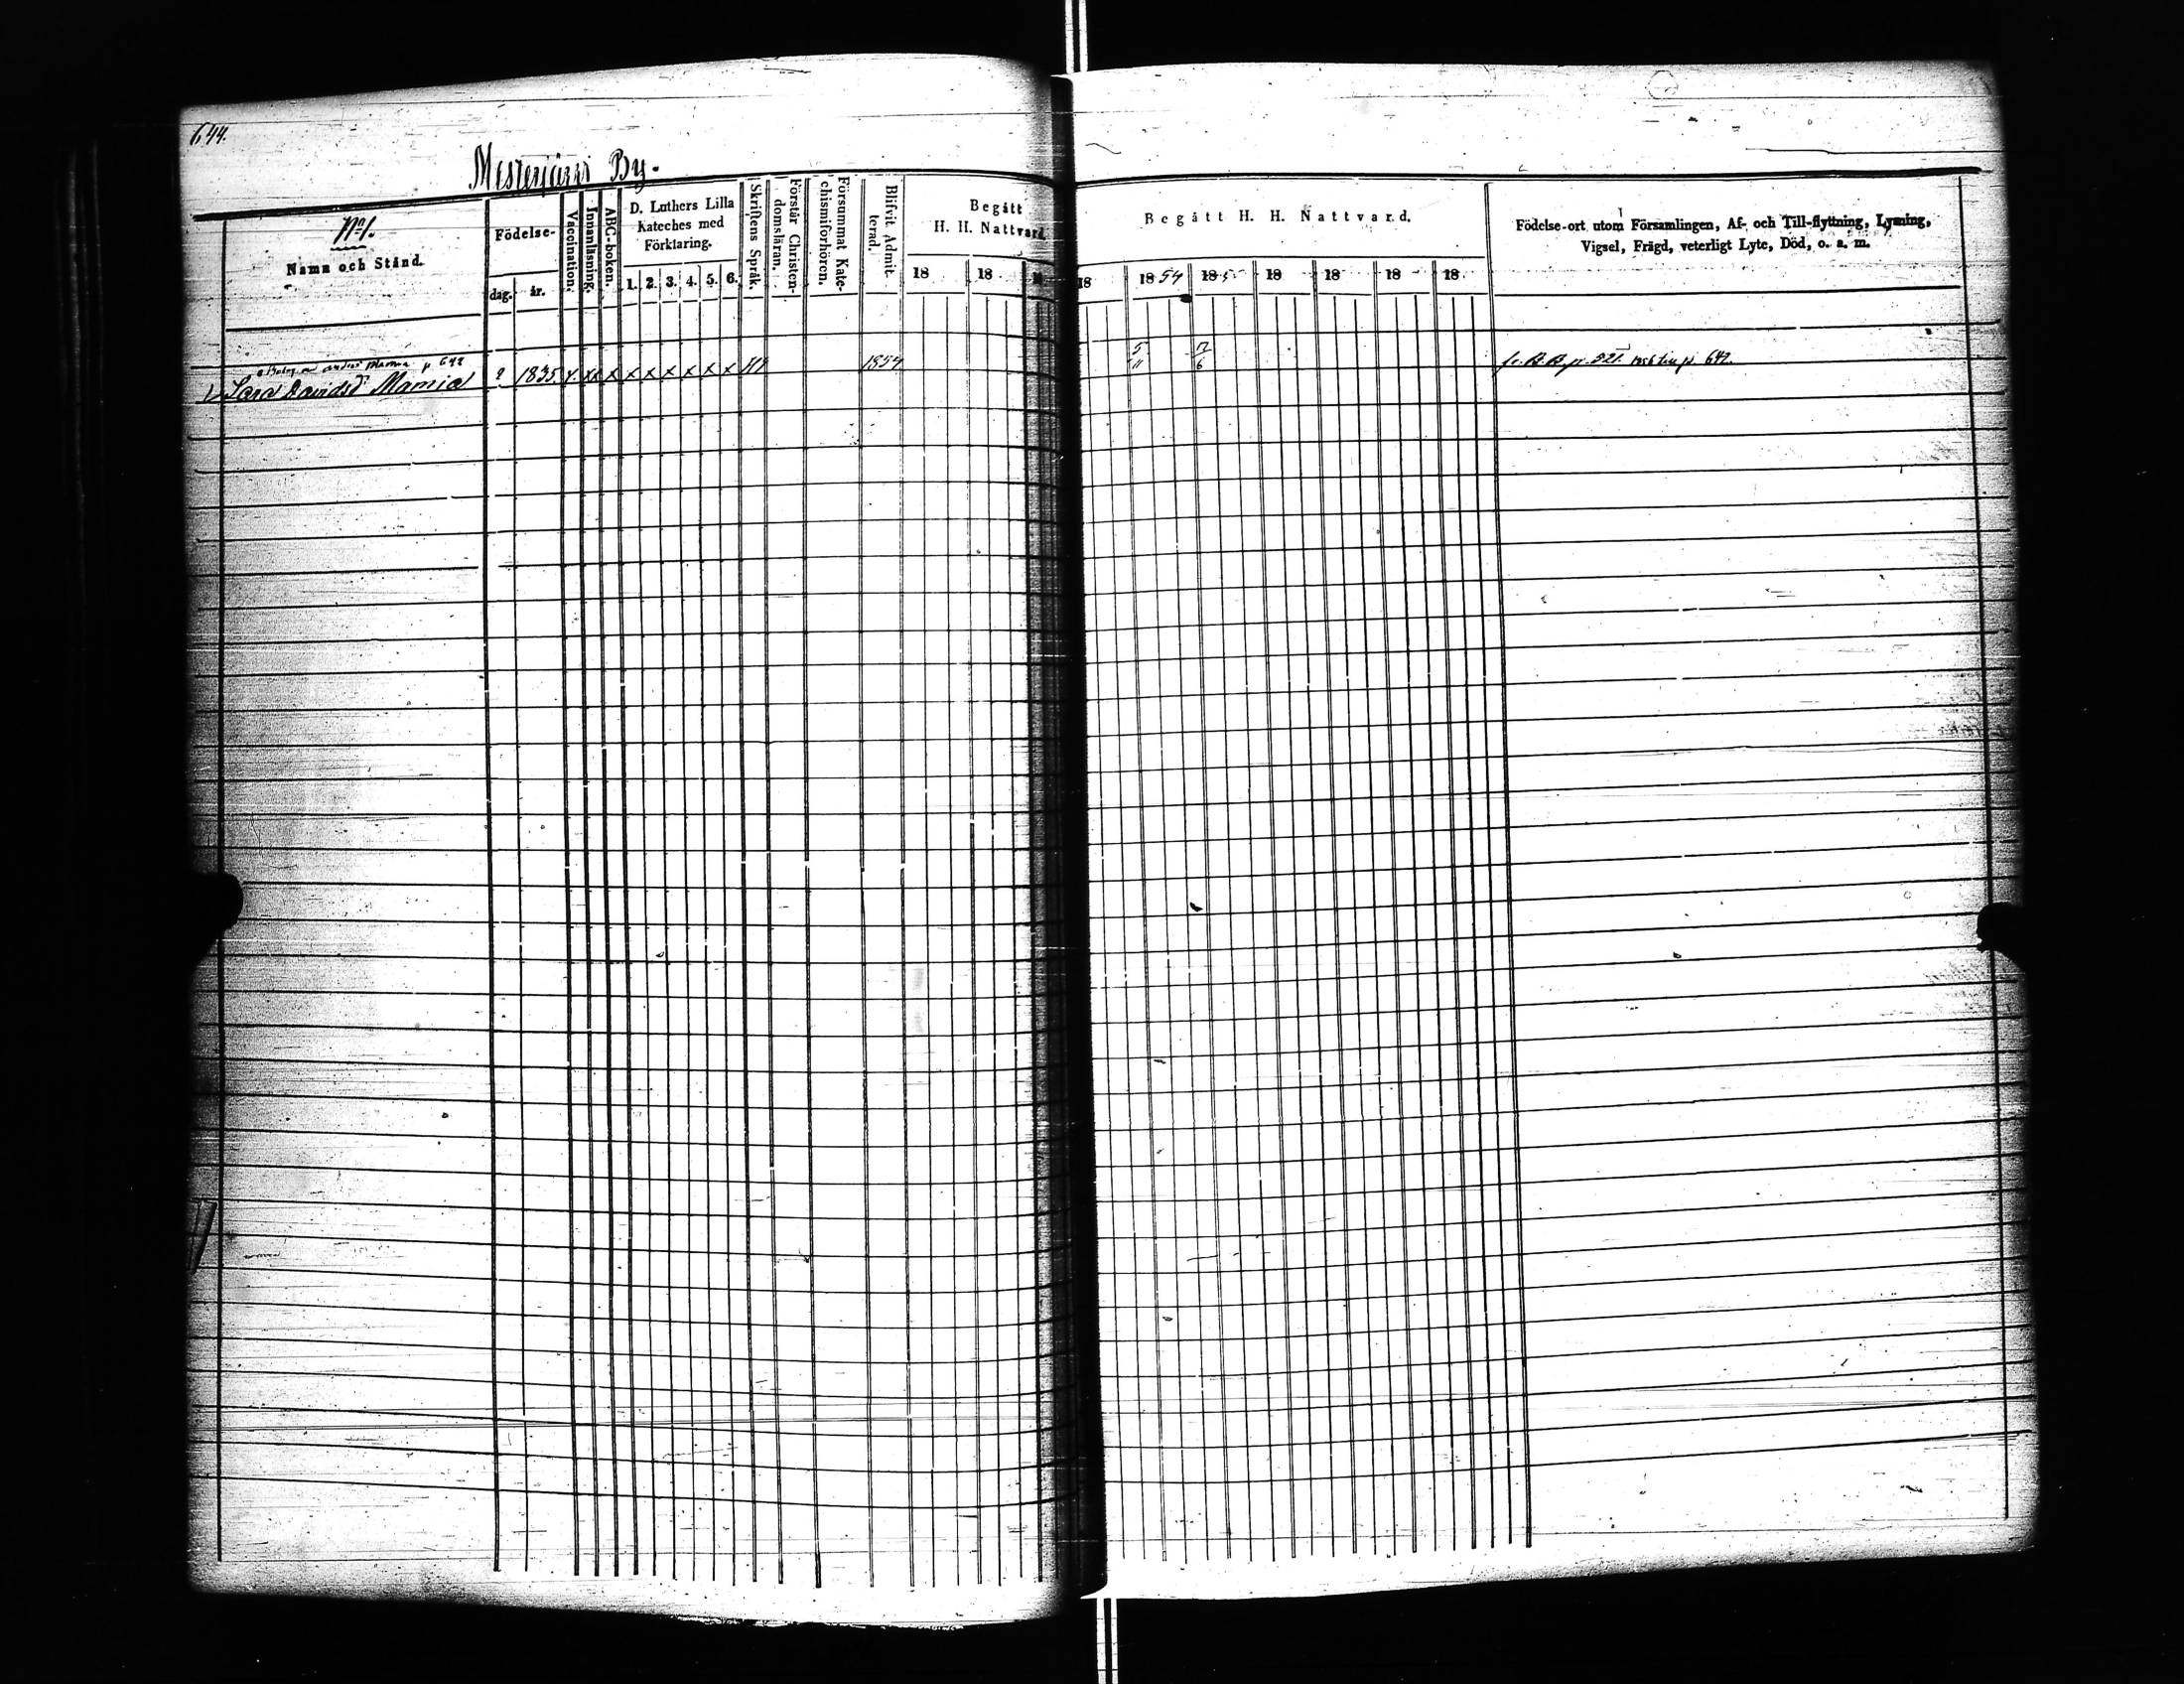 644.
Mesterjärvi By.
No 1.
Namn och Stånd.
Födelse-
dag.
år.
Vaccination.
Innanläsning.
ABC-boken.
D. Luthers Lilla
Kateches med
Förklaring.
1. 2. 3. 4. 5. 6.
Skriftens Språk.
Förstår Christen-
domsläran.
Försummat Kate-
chismiförhören.
Blifvit Admit-
terad.
Begått
H. H. Nattvard
18 18 18
Begått H. H. Nattvard.
18 1854 185 18 18 18 18
Födelse-ort utom Församlingen, Af- och Till-flyttning, Lysning,
Vigsel, Frägd, veterligt Lyte, Död, o. a. m.
Anders Mamia p 642
Sara Davidsd Mamia ? 1835 x xx x x x x x x x 1854 5/11 17/6 fr. B. B. p. 521. 1856 till p 642.